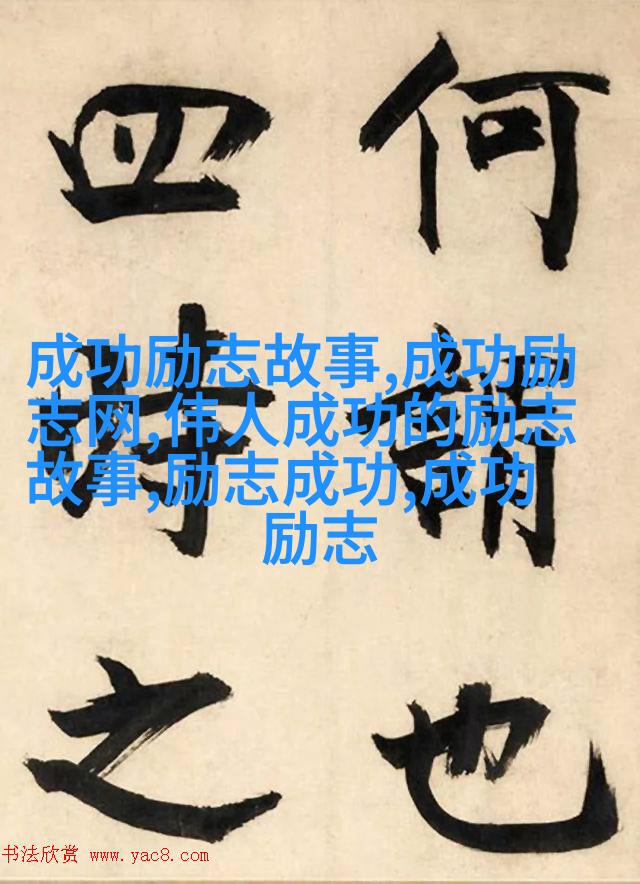 何謂也
四時之
成功励志故事,成功励
志网,伟人成功的励志
故事,励志成功,成功
励志
书法欣赏 www.yac8.com